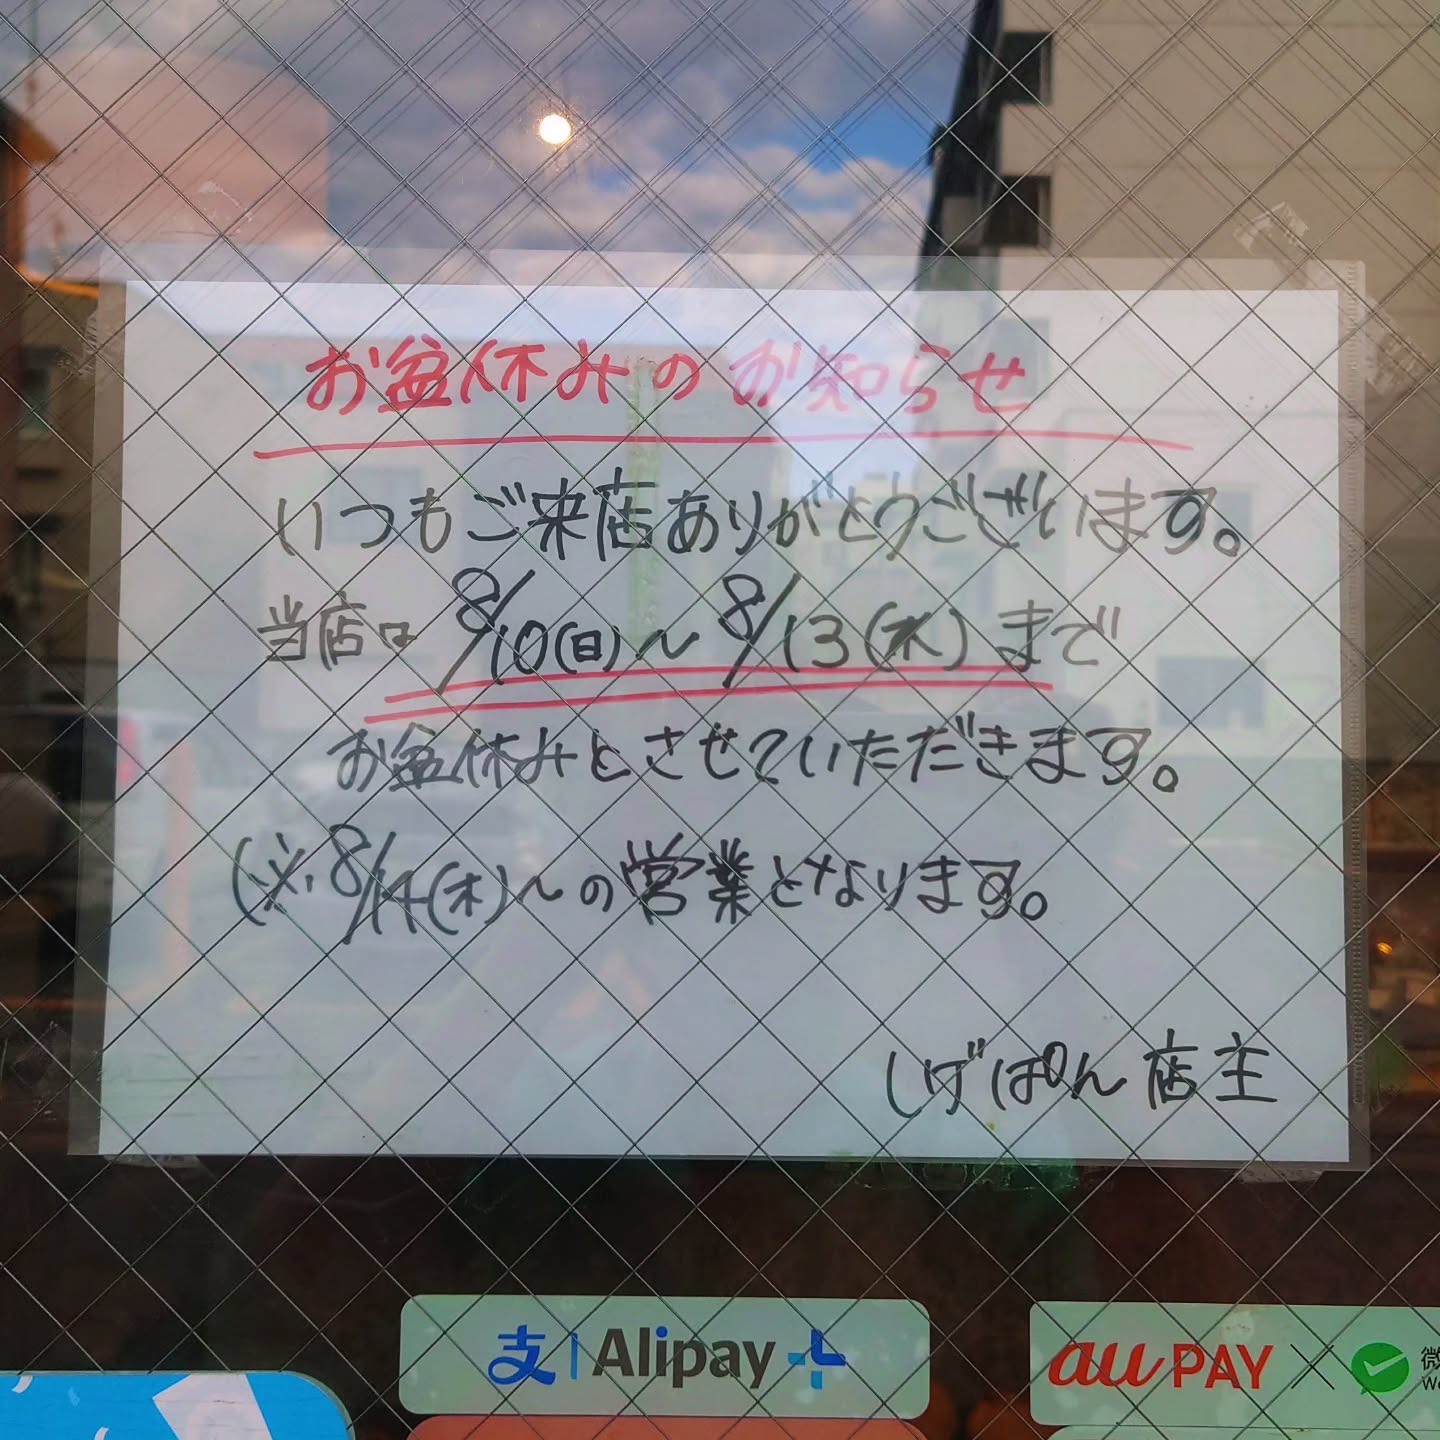 お盆休みのお知らせ
いつもご来店ありがとうございます。
当店は 8/10(日)〜8/13(水)まで
お盆休みとさせていただきます。
(※.8/14(木)〜の営業となります。
しげぱん 店主
支 Alipay+
au PAY × 微
We